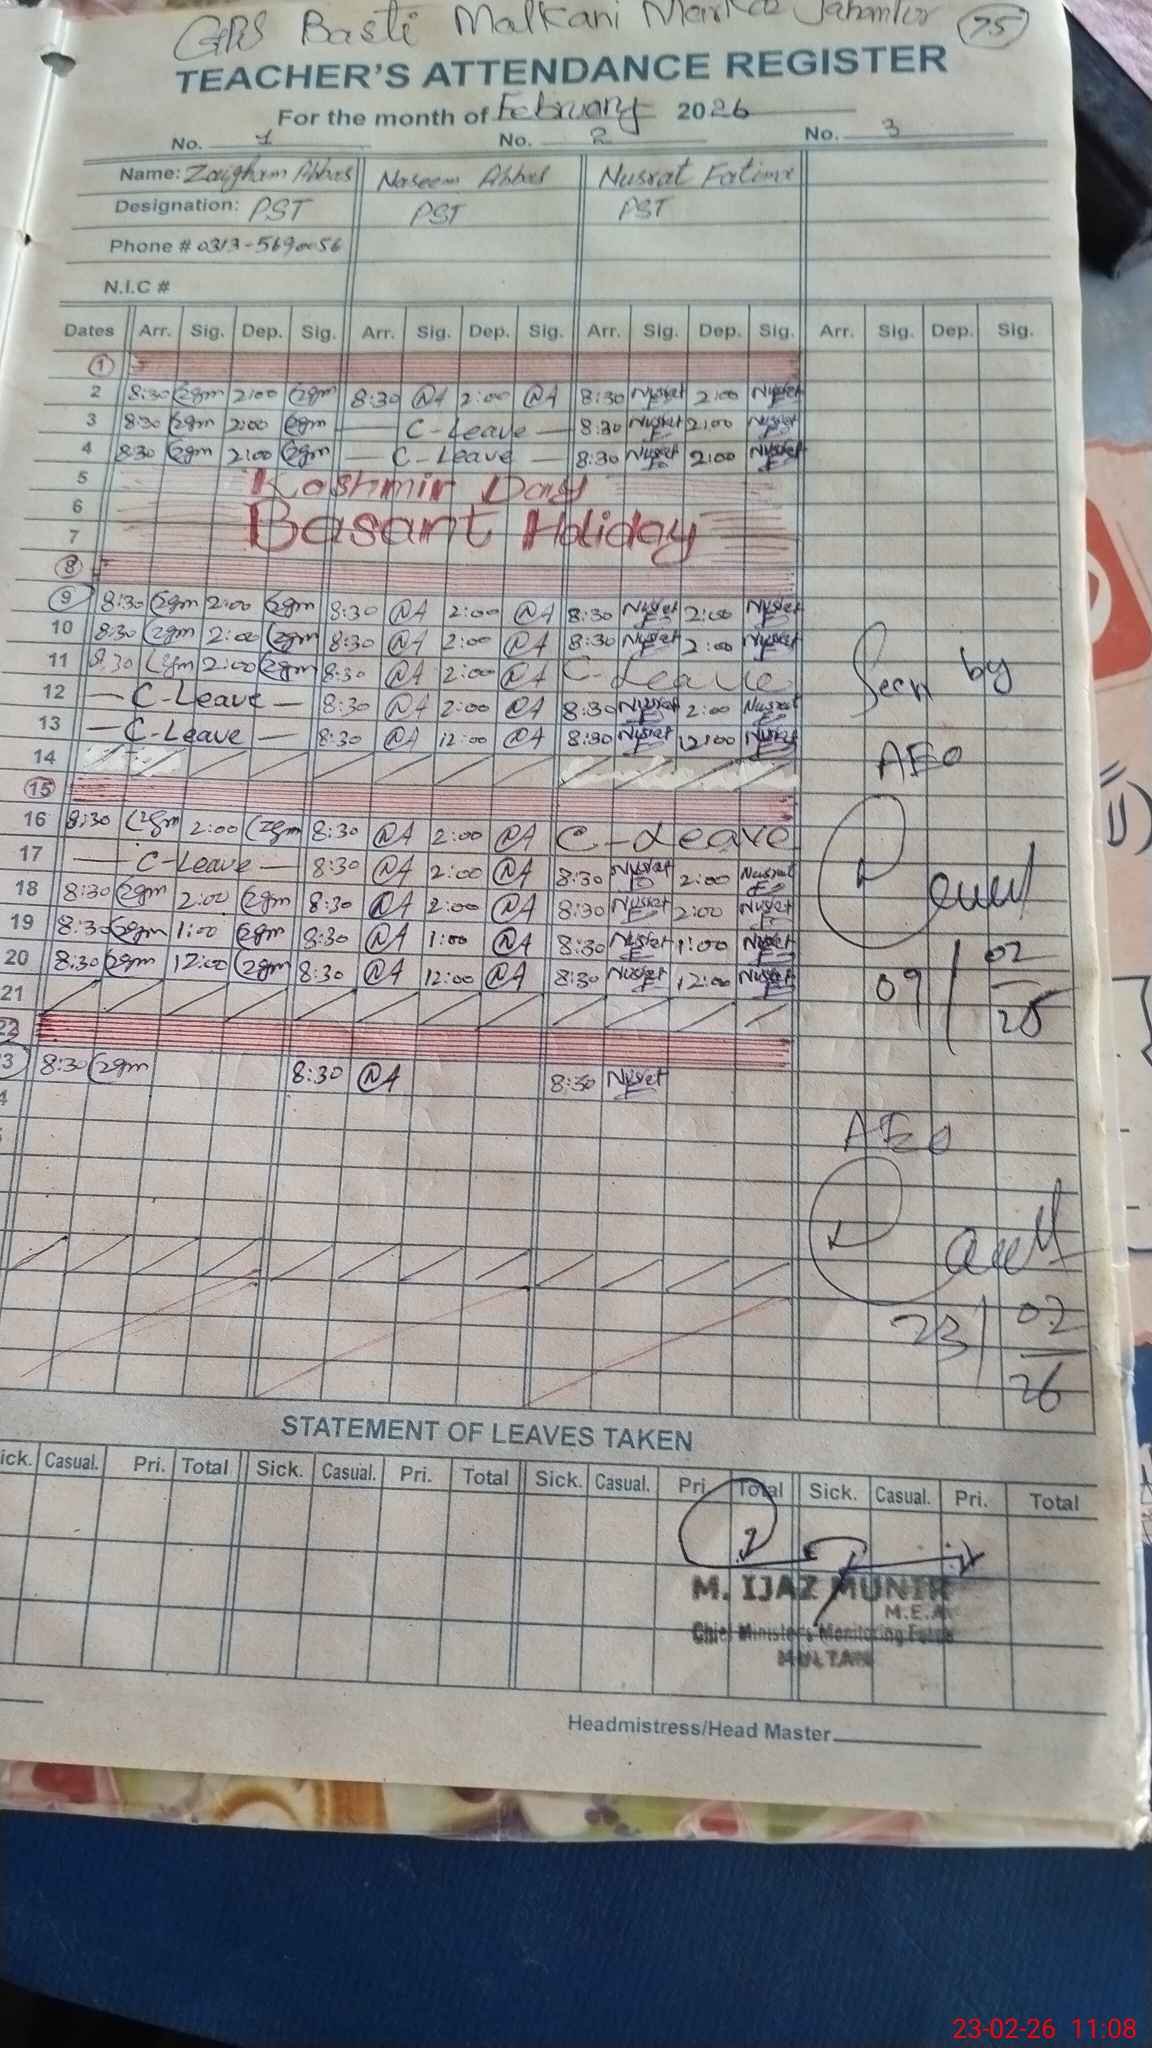 GPS Basti Malkani Markaz Jahanpur 75
TEACHER'S ATTENDANCE REGISTER
For the month of February 2026
No. 1 No. 2 No. 3
Name: Zaigham Abbas Naseem Abbas Nusrat Fatima
Designation: PST PST PST
Phone # 0313-5690056
N.I.C #
Dates Arr. Sig. Dep. Sig. Arr. Sig. Dep. Sig. Arr. Sig. Dep. Sig. Arr. Sig. Dep. Sig.
1
2 8:30 Zgm 2:00 Zgm 8:30 NA 2:00 NA 8:30 Nusrat 2:00 Nusrat
3 8:30 Zgm 2:00 Zgm — C-Leave — 8:30 Nusrat 2:00 Nusrat
4 8:30 Zgm 2:00 Zgm — C-Leave — 8:30 Nusrat 2:00 Nusrat
5 Kashmir Day
6 Basant Holiday
7
8
9 8:30 Zgm 2:00 Zgm 8:30 NA 2:00 NA 8:30 Nusrat 2:00 Nusrat
10 8:30 Zgm 2:00 Zgm 8:30 NA 2:00 NA 8:30 Nusrat 2:00 Nusrat
11 8:30 Zgm 2:00 Zgm 8:30 NA 2:00 NA C-Leave
12 — C-Leave — 8:30 NA 2:00 NA 8:30 Nusrat 2:00 Nusrat
13 — C-Leave — 8:30 NA 12:00 NA 8:30 Nusrat 12:00 Nusrat
14
15
16 8:30 Zgm 2:00 Zgm 8:30 NA 2:00 NA C-Leave
17 — C-Leave — 8:30 NA 2:00 NA 8:30 Nusrat 2:00 Nusrat
18 8:30 Zgm 2:00 Zgm 8:30 NA 2:00 NA 8:30 Nusrat 2:00 Nusrat
19 8:30 Zgm 1:00 Zgm 8:30 NA 1:00 NA 8:30 Nusrat 1:00 Nusrat
20 8:30 Zgm 12:00 Zgm 8:30 NA 12:00 NA 8:30 Nusrat 12:00 Nusrat
21
22
3 8:30 Zgm 8:30 NA 8:30 Nusrat
4
Seen by
AEO
09/02
26
AEO
23/02
26
STATEMENT OF LEAVES TAKEN
ick. Casual. Pri. Total Sick. Casual. Pri. Total Sick. Casual. Pri. Total Sick. Casual. Pri. Total
M. IJAZ MUNIR
M.E.A
Chief Minister's Monitoring Force
MULTAN
Headmistress/Head Master
23-02-26 11:08